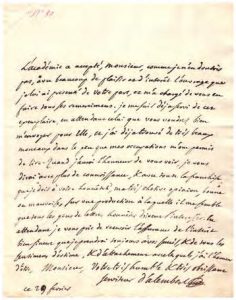 L'académie a accepté, monsieur, comme je n'en doutois
pas, avec beaucoup de plaisir et d'interêt l'ouvrage que
je lui ai présenté de votre part, et m'a chargé de vous en
faire tous ses remercimens. je me suis déja servi de cet
exemplaire, en attendant celui que vous voulez bien
m'envoyer pour elle, et j'ai déja trouvé de très beaux
morceaux dans le peu que mes occupations m'ont permis
de lire. Quand j'aurai l'honneur de vous voir, je vous
dirai avec plus de connoissance, et avec toute la franchise
que je dois à votre honnêteté, ma très
en mauvaise sur une production à laquelle il me semble
que tous les gens de lettres honnêtes doivent s'interesser. en
attendant je vous prie de recevoir l'assurance de l'interêt
bien sincere que je prendrai toujours avec tous les
sentimens d'estime, et d'attachement avec lesquels j'ai l'honneur
d'etre, Monsieur, Votre très humble et très obéissant
serviteur d'alembert
ce 29 fevrier